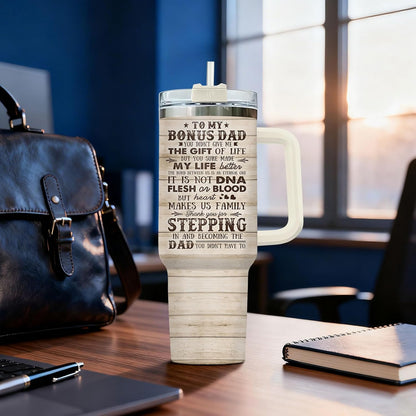 TO MY
BONUS DAD
YOU DIDN'T GIVE ME
THE GIFT OF LIFE
BUT YOU SURE MADE
MY LIFE better
THE BOND BETWEEN US IS AN ETERNAL ONE
IT IS NOT DNA
FLESH or BLOOD
BUT heart
MAKES US FAMILY
Thank you for
STEPPING
IN AND BECOMING THE
DAD YOU DIDN'T HAVE TO